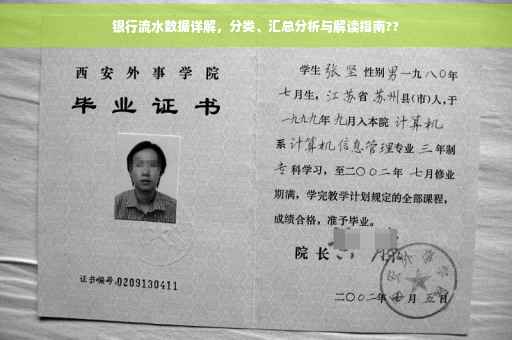 银行流水数据详解，分类、汇总分析与解读指南??
西安外事学院
毕业证书
证书编号:0209130411
学生张坚性别男一九八〇年
七月生，江苏省苏州县(市)人，于
一九九九年九月入本院计算机
系计算机信息管理专业三年制
专科学习，至二〇〇二年七月修业
期满，学完教学计划规定的全部课程，
成绩合格，准予毕业。
院长
二〇〇二年 月五日